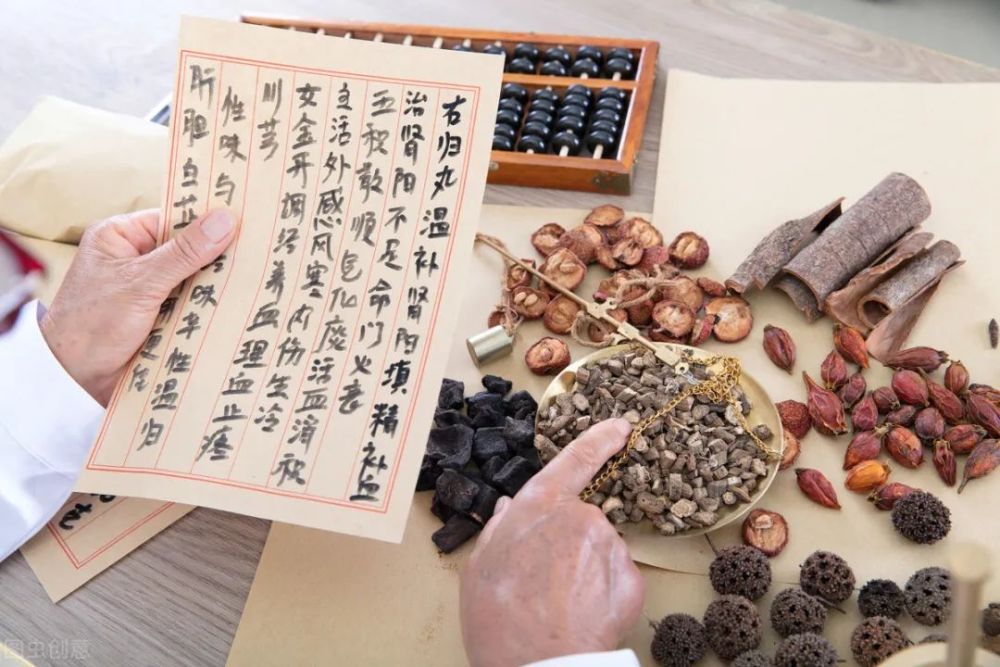 右归丸温补肾阳填精补血
治肾阳不足命门火衰
五积散顺气化痰活血消积
主活外感风寒内伤生冷
女金丹调经养血理血止疼
川芎
性味与 味辛性温归
肝胆白芷
图虫创意